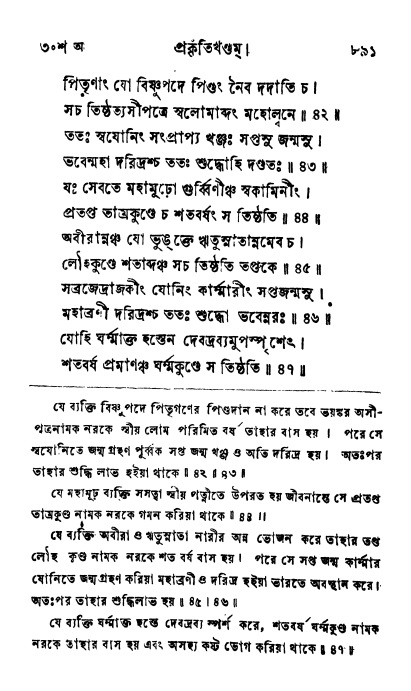 ৩০শ অ প্রকৃতিখণ্ডম্। ৮৯১
পিতৃণাং যো বিষ্ণুপদে পিণ্ডং নৈব দদাতি চ।
সচ তিষ্ঠত্যসীপত্রে স্বলোমাব্দং মহোল্বনে॥ ৪২॥
ততঃ স্বযোনিং সংপ্রাপ্য খঞ্জঃ সপ্তসু জন্মসু।
ভবেন্মহা দরিদ্রশ্চ ততঃ শুদ্ধোহি দণ্ডতঃ॥ ৪৩॥
যঃ সেবতে মহামূঢ়ো গুর্ব্বিণীঞ্চ স্বকামিনীং।
প্রতপ্ত তাম্রকুণ্ডে চ শতবর্ষং স তিষ্ঠতি॥ ৪৪॥
অবীরান্নঞ্চ যো ভুঙ্ক্তে ঋতুস্নাতান্নমেব চ।
লৌহকুণ্ডে শতাব্দঞ্চ সচ তিষ্ঠতি তপ্তকে॥ ৪৫॥
সব্রজেদ্রাজকীং যোনিং কার্ম্মারীং সপ্তজন্মসু।
মহাব্রণী দরিদ্রশ্চ ততঃ শুদ্ধো ভবেন্নরঃ॥ ৪৬॥
যোহি ঘর্ম্মাক্ত হস্তেন দেবদ্রব্যমুপস্পৃশেৎ।
শতবর্ষ প্রমাণঞ্চ ঘর্ম্মকুণ্ডে স তিষ্ঠতি॥ ৪৭॥
যে ব্যক্তি বিষ্ণুপদে পিতৃগণের পিণ্ডদান না করে তবে ভয়ঙ্কর অসী-
পত্রনামক নরকে স্বীয় লোম পরিমিত বর্ষ তাহার বাস হয়। পরে সে
স্বযোনিতে জন্ম গ্রহণ পূর্ব্বক সপ্ত জন্ম খঞ্জ ও অতি দরিদ্র হয়। অতঃপর
তাহার শুদ্ধি লাভ হইয়া থাকে॥ ৪২॥৪৩॥
যে মহামূঢ় ব্যক্তি সসত্ত্বা স্বীয় পত্নীতে উপরত হয় জীবনান্তে সে প্রতপ্ত
তাম্রকুণ্ড নামক নরকে গমন করিয়া থাকে॥ ৪৪॥
যে ব্যক্তি অবীরা ও ঋতুস্নাতা নারীর অন্ন ভোজন করে তাহার তপ্ত
লৌহ কুণ্ড নামক নরকে শত বর্ষ বাস হয়। পরে সে সপ্ত জন্ম কার্ম্মার
যোনিতে জন্ম গ্রহণ করিয়া মহাব্রণী ও দরিদ্র হইয়া ভারতে অবস্থান করে।
অতঃপর তাহার শুদ্ধিলাভ হয়॥ ৪৫।৪৬॥
যে ব্যক্তি ঘর্ম্মাক্ত হস্তে দেবদ্রব্য স্পর্শ করে, শতবর্ষ ঘর্ম্মকুণ্ড নামক
নরকে তাহার বাস হয় এবং অসহ্য কষ্ট ভোগ করিয়া থাকে॥ ৪৭॥